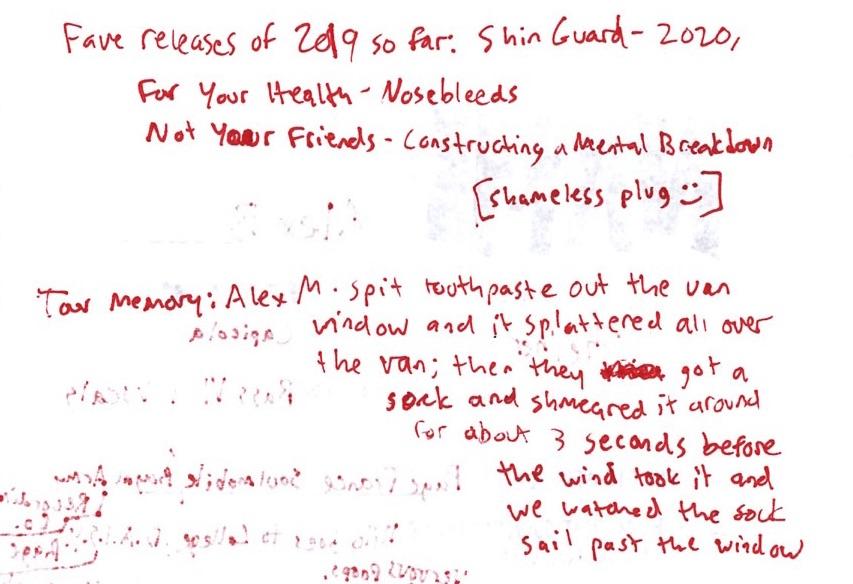 Fave releases of 2019 so far: Shin Guard - 2020,
For Your Health - Nosebleeds
Not Your Friends - Constructing a Mental Breakdown
[shameless plug :)]
Alex B
Tour memory: Alex M. spit toothpaste out the van
window and it splattered all over
Capicola
the van; then they got a
sock and shmeared it around
Bass VI, Vocals
for about 3 seconds before
the wind took it and
we watched the sock
sail past the window